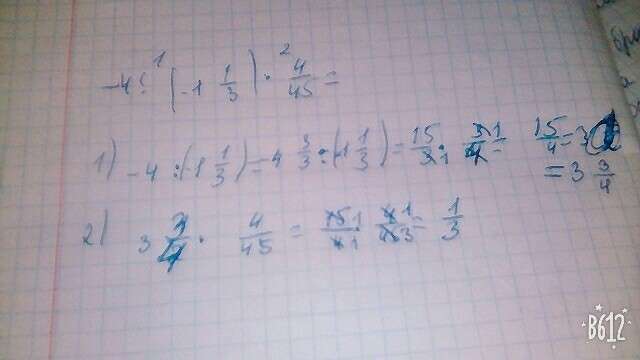 -4 : (-1 1/3) · 4/45 =
1) -4 : (-1 1/3) = 4 3/3 : (-1 1/3) = 15/3 · 3/4 = 15/4 = 3
= 3 3/4
2) 3 3/4 · 4/45 = 15/4 4/45 = 1/3
B612